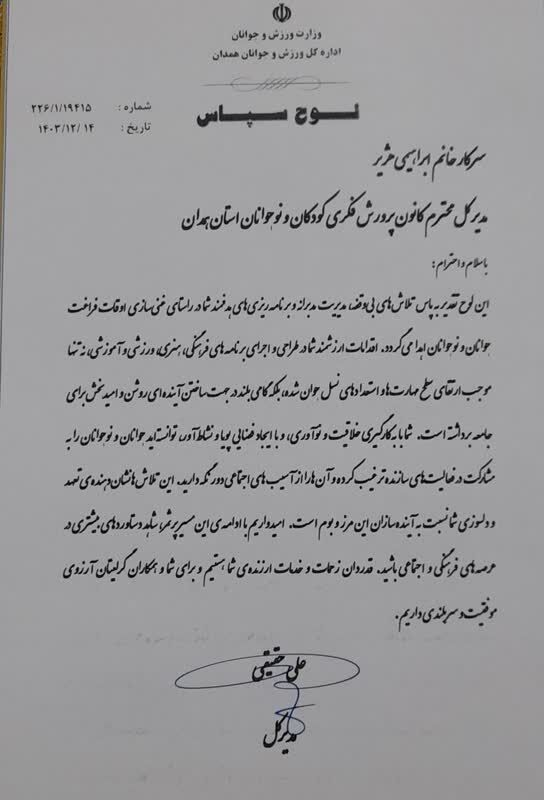 وزارت ورزش و جوانان
اداره کل ورزش و جوانان همدان
شماره : ۲۲۶/۱/۱۹۴۱۵
لوح سپاس
تاریخ : ۱۴۰۳/۱۲/۱۴
سرکار خانم ابراهیمی هژیر
مدیرکل محترم کانون پرورش فکری کودکان و نوجوانان استان همدان
باسلام و احترام؛
این لوح تقدیر به پاس تلاش های بی وقفه، مدیریت مدبرانه و برنامه ریزی های هدفمند شما در راستای غنی سازی اوقات فراغت
جوانان و نوجوانان اهدا می گردد. اقدامات ارزشمند شما در طراحی و اجرای برنامه های فرهنگی، هنری، ورزشی و آموزشی، نه تنها
موجب ارتقای سطح مهارت ها و استعدادهای نسل جوان شده، بلکه گامی بلند در جهت ساختن آینده ای روشن و امیدبخش برای
جامعه برداشته است. شما با به کارگیری خلاقیت و نوآوری، و با ایجاد فضایی پویا و نشاط آور، توانسته اید جوانان و نوجوانان را به
مشارکت در فعالیت های سازنده ترغیب کرده و آن ها را از آسیب های اجتماعی دور نگه دارید. این تلاش ها نشان دهنده ی تعهد
و دلسوزی شما نسبت به آینده سازان این مرز و بوم است. امیدواریم با ادامه ی این مسیر پرثمر، شاهد دستاوردهای بیشتری در
عرصه های فرهنگی و اجتماعی باشید. قدردان زحمات و خدمات ارزنده ی شما هستیم و برای شما و همکاران گرامیتان آرزوی
موفقیت و سربلندی داریم.
علی حقیقی
مدیرکل